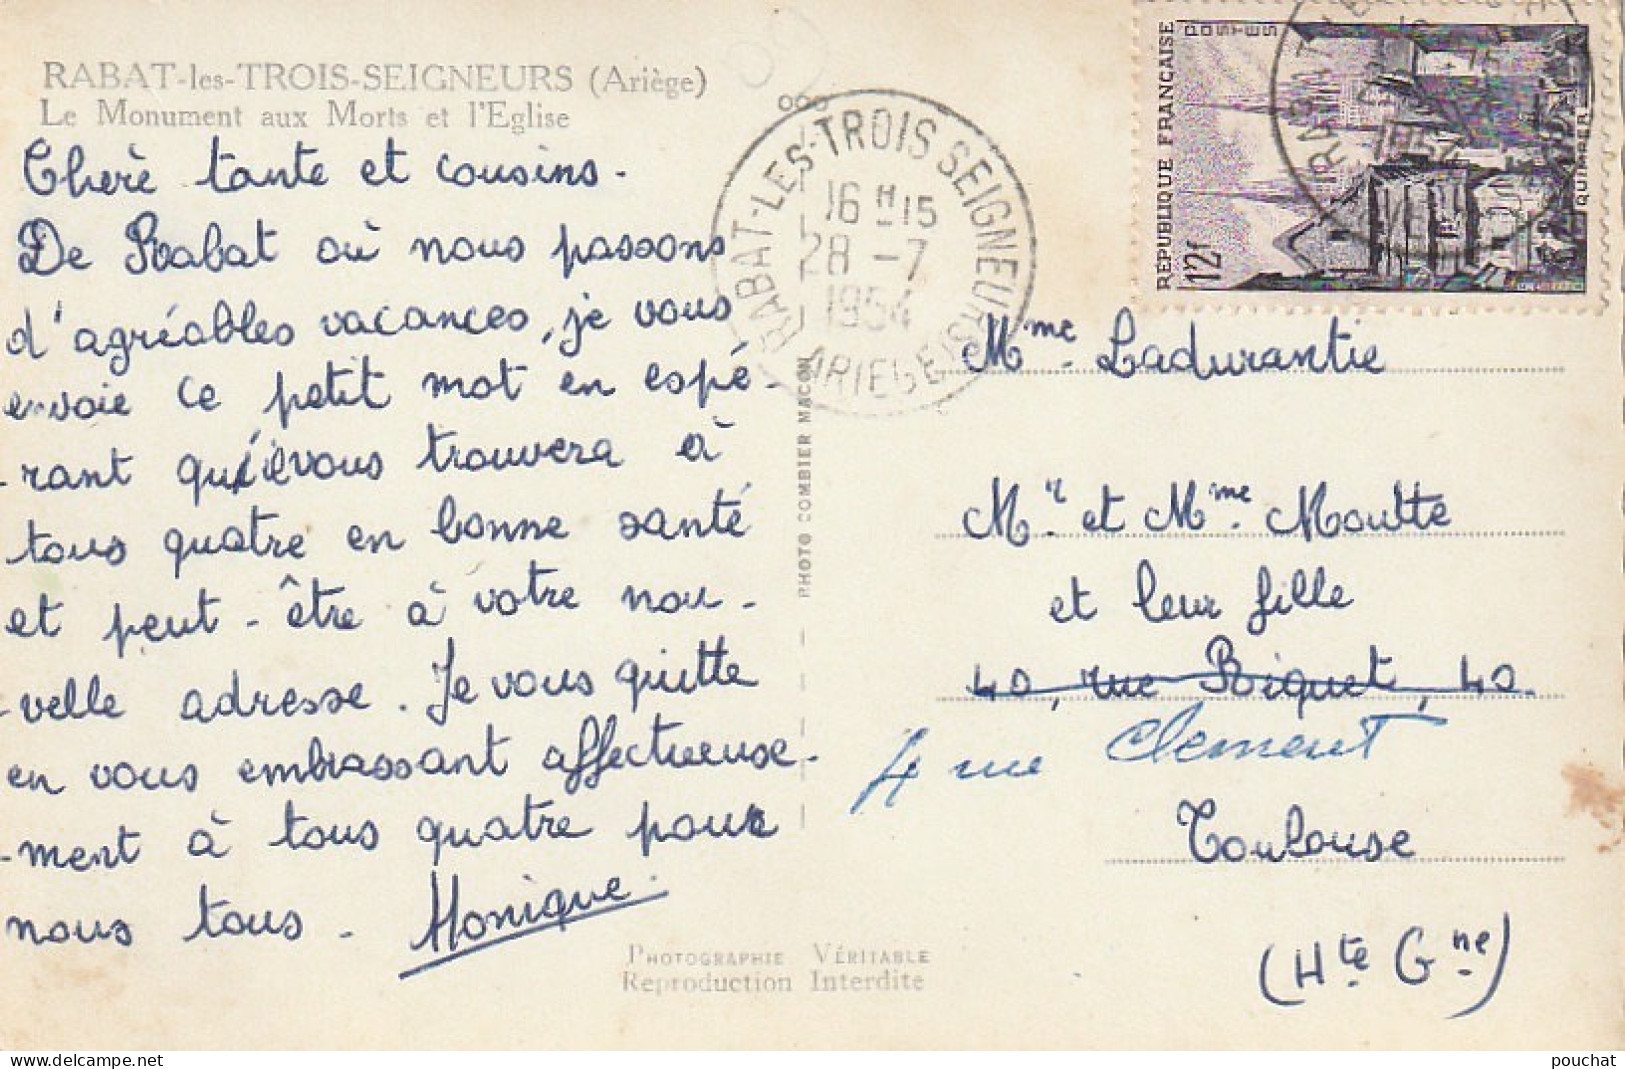 RABAT-les-TROIS-SEIGNEURS (Ariège)
Le Monument aux Morts et l'Eglise
Cherè tante et cousins.
De Rabat où nous passons
d'agréables vacances, je vous
envoie ce petit mot en espé-
-rant qu'il vous trouvera à
tous quatre en bonne santé
et peut-être à votre nou-
-velle adresse. Je vous quitte
en vous embrassant affectueuse-
-ment à tous quatre pour
nous tous. Monique.
PHOTOGRAPHIE VÉRITABLE
Reproduction Interdite
PHOTO COMBIER MACON
RABAT-LES-TROIS SEIGNEURS
16 H 15
28 -7
1954
ARIEGE
RÉPUBLIQUE FRANÇAISE
POSTES
12f
QUIMPER
Mme Ladurantie
Mr et Mme Moutte
et leur fille
40, rue Riquet, 40.
4 rue Clement
Toulouse
(Hte Gne)
pouchat